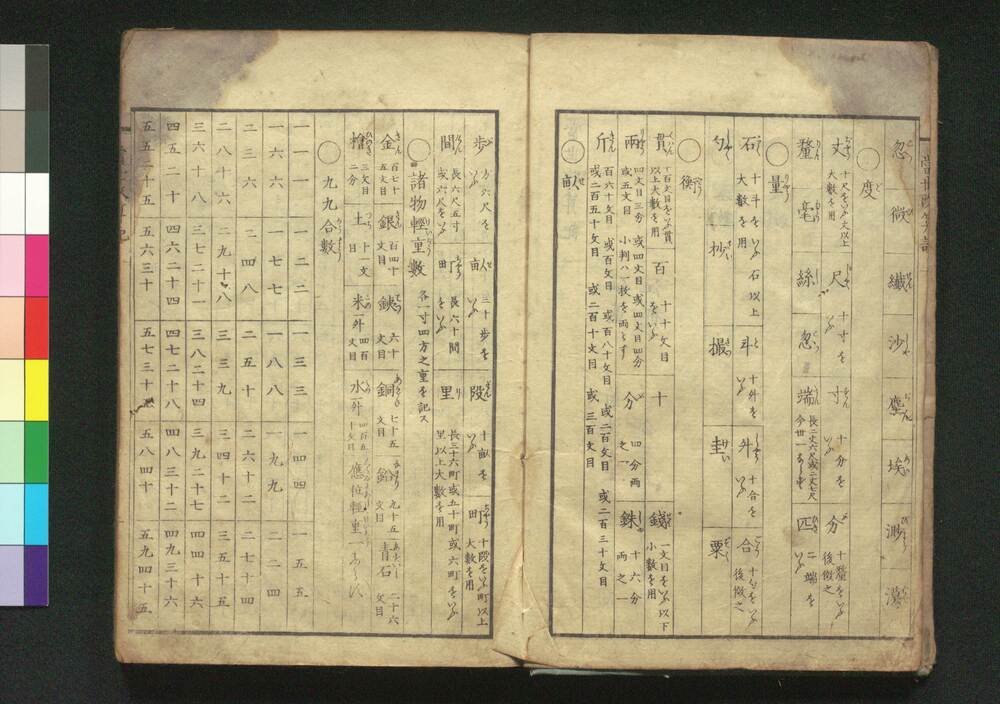 忽 微 纖 沙 塵 埃 渺 漠
○度
丈 十尺をいふ丈以上大數を用 尺 十寸を 寸 十分を 分 十釐をいふ後傚之
釐 毫 絲 忽 端 長二丈六尺或二丈七尺 匹 二端を
○量
石 十斗をいふ石以上大數を用 斗 十升を 升 十合を 合 十勺をいふ後傚之
勺 抄 撮 圭 粟
○衡
貫 千百文目をいふ貫以上大數を用 百 十十文目をいふ 十 錢 一文目をいふ以下小數を用
兩 四文目三分 或四文目 或四文目四分 或五文目 小判ハ一枚を兩とす 分 四分兩之一 銖 十六分兩之一
斤 百六十文目 或百文目 或百八十文目 或二百文目 或二百三十文目 或二百五十文目 或二百十文目 或三百文目
○畝
歩 方六尺を 畝 三十歩を 段 十畝を 町 十段をいふ町以上大數を用
間 長六尺五寸或六尺をいふ 町 長六十間をいふ 里 長三十六町或五十町或六町をいふ里以上大數を用
○諸物輕重數 各一寸四方之重を記ス
金 百七十五文目 銀 百四十文目 鐵 六十文目 銅 七十五文目 鉛 九十五文目 青石 二十六文目
檜 三文目二分 土 十一文目 米一升 四百文目 水一升
○九九合數
一一一 一二二 一三三 一四四 一五五
一六六 一七七 一八八 一九九 二二四
二三六 二四八 二五十 二六十二 二七十四
二八十六 二九十八 三三九 三四十二 三五十五
三六十八 三七二十一 三八二十四 三九二十七 四四十六
四五二十 四六二十四 四七二十八 四八三十二 四九三十六
五五二十五 五六三十 五七三十五 五八四十 五九四十五